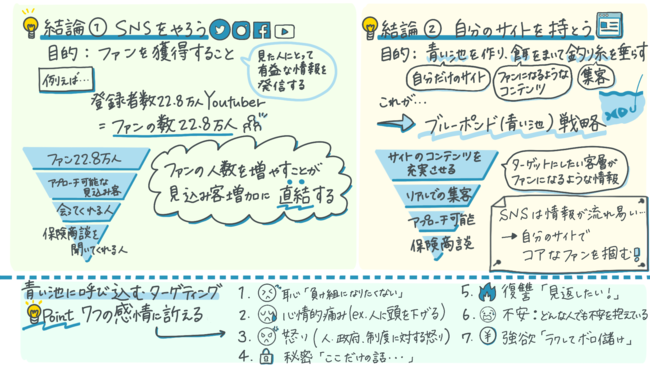 結論① SNSをやろう
目的: ファンを獲得すること
見た人にとって
有益な情報を
発信する
例えば…
登録者数22.8万人 Youtuber
= ファンの数22.8万人
ファン22.8万人
アプローチ可能な
見込み客
会ってくれる人
保険商談を
聞いてくれる人
ファンの人数を増やすことが
見込み客増加に直結する
結論② 自分のサイトを持とう
目的: 青い池を作り、餌をまいて釣り糸を垂らす
自分だけのサイト
ファンになるような
コンテンツ
集客
これが…
ブルーポンド(青い池)戦略
サイトのコンテンツを
充実させる
リアルでの集客
アプローチ可能
保険商談
ターゲットにしたい客層が
ファンになるような情報
SNSは情報が流れ易い…
→自分のサイトで
コアなファンを掴む!
青い池に呼び込むターゲティング
Point 7つの感情に訴える
1. 恥心「負け組になりたくない」
2. 心情的痛み(ex.人に頭を下げる)
3. 怒り(人、政府、制度に対する怒り)
4. 秘密「ここだけの話・・・」
5. 復讐「見返したい!」
6. 不安:どんな人でも不安を抱えている
7. 強欲「ラクしてボロ儲け」